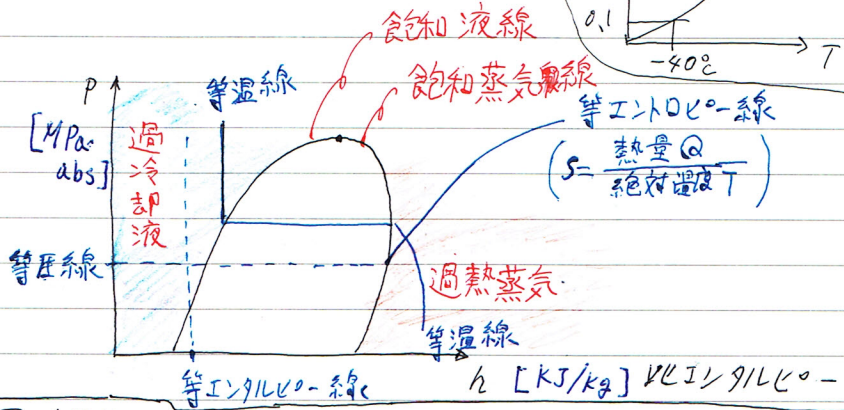 飽和液線
0.1
-40℃
T
飽和蒸気線
P
[MPa・abs]
等温線
等エントロピー線
(S= 熱量Q / 絶対温度T)
過冷却液
等圧線
過熱蒸気
等温線
等エンタルピー線
h [KJ/kg] 比エンタルピー